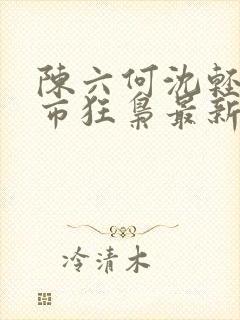 陳六何沈輕
市狂梟最新
冷清木